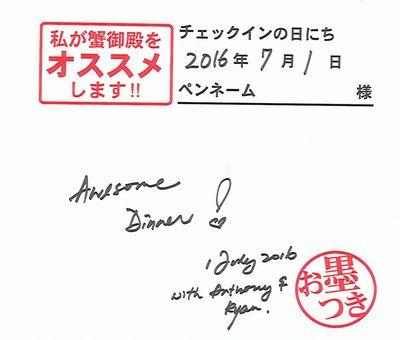 私が蟹御殿を
オススメ
します!!
チェックインの日にち
2016年 7月1日
ペンネーム 様
Awesome
Dinner!
1 July 2016
with Anthony &
Ryan.
お墨つき